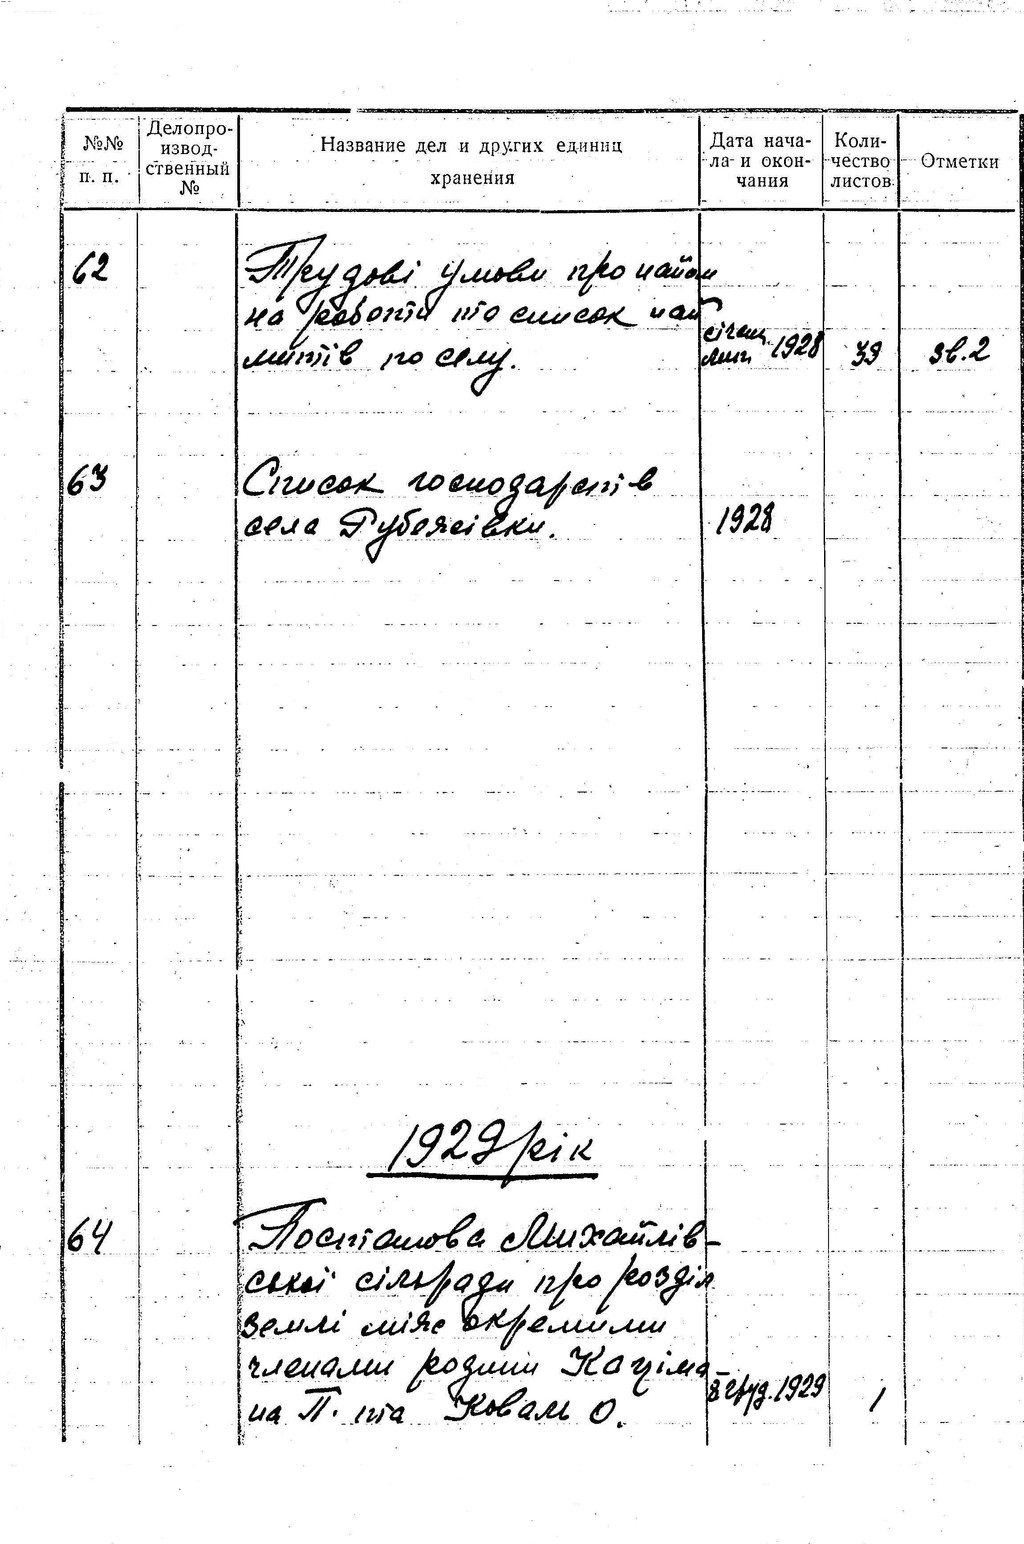 №№ п. п.
Делопроизводственный №
Название дел и других единиц хранения
Дата начала и окончания
Количество листов
Отметки
62
Трудові умови про найом
на роботи та список най
митів по селу.
січень
лип. 1928
39
зв. 2
63
Список господарств
села Рубежівки.
1928
1929 рік
64
Постанова Михайлів-
ської сільради про розділ
землі між окремими
членами родини
на П. та Коваль О.
8 груд. 1929
1